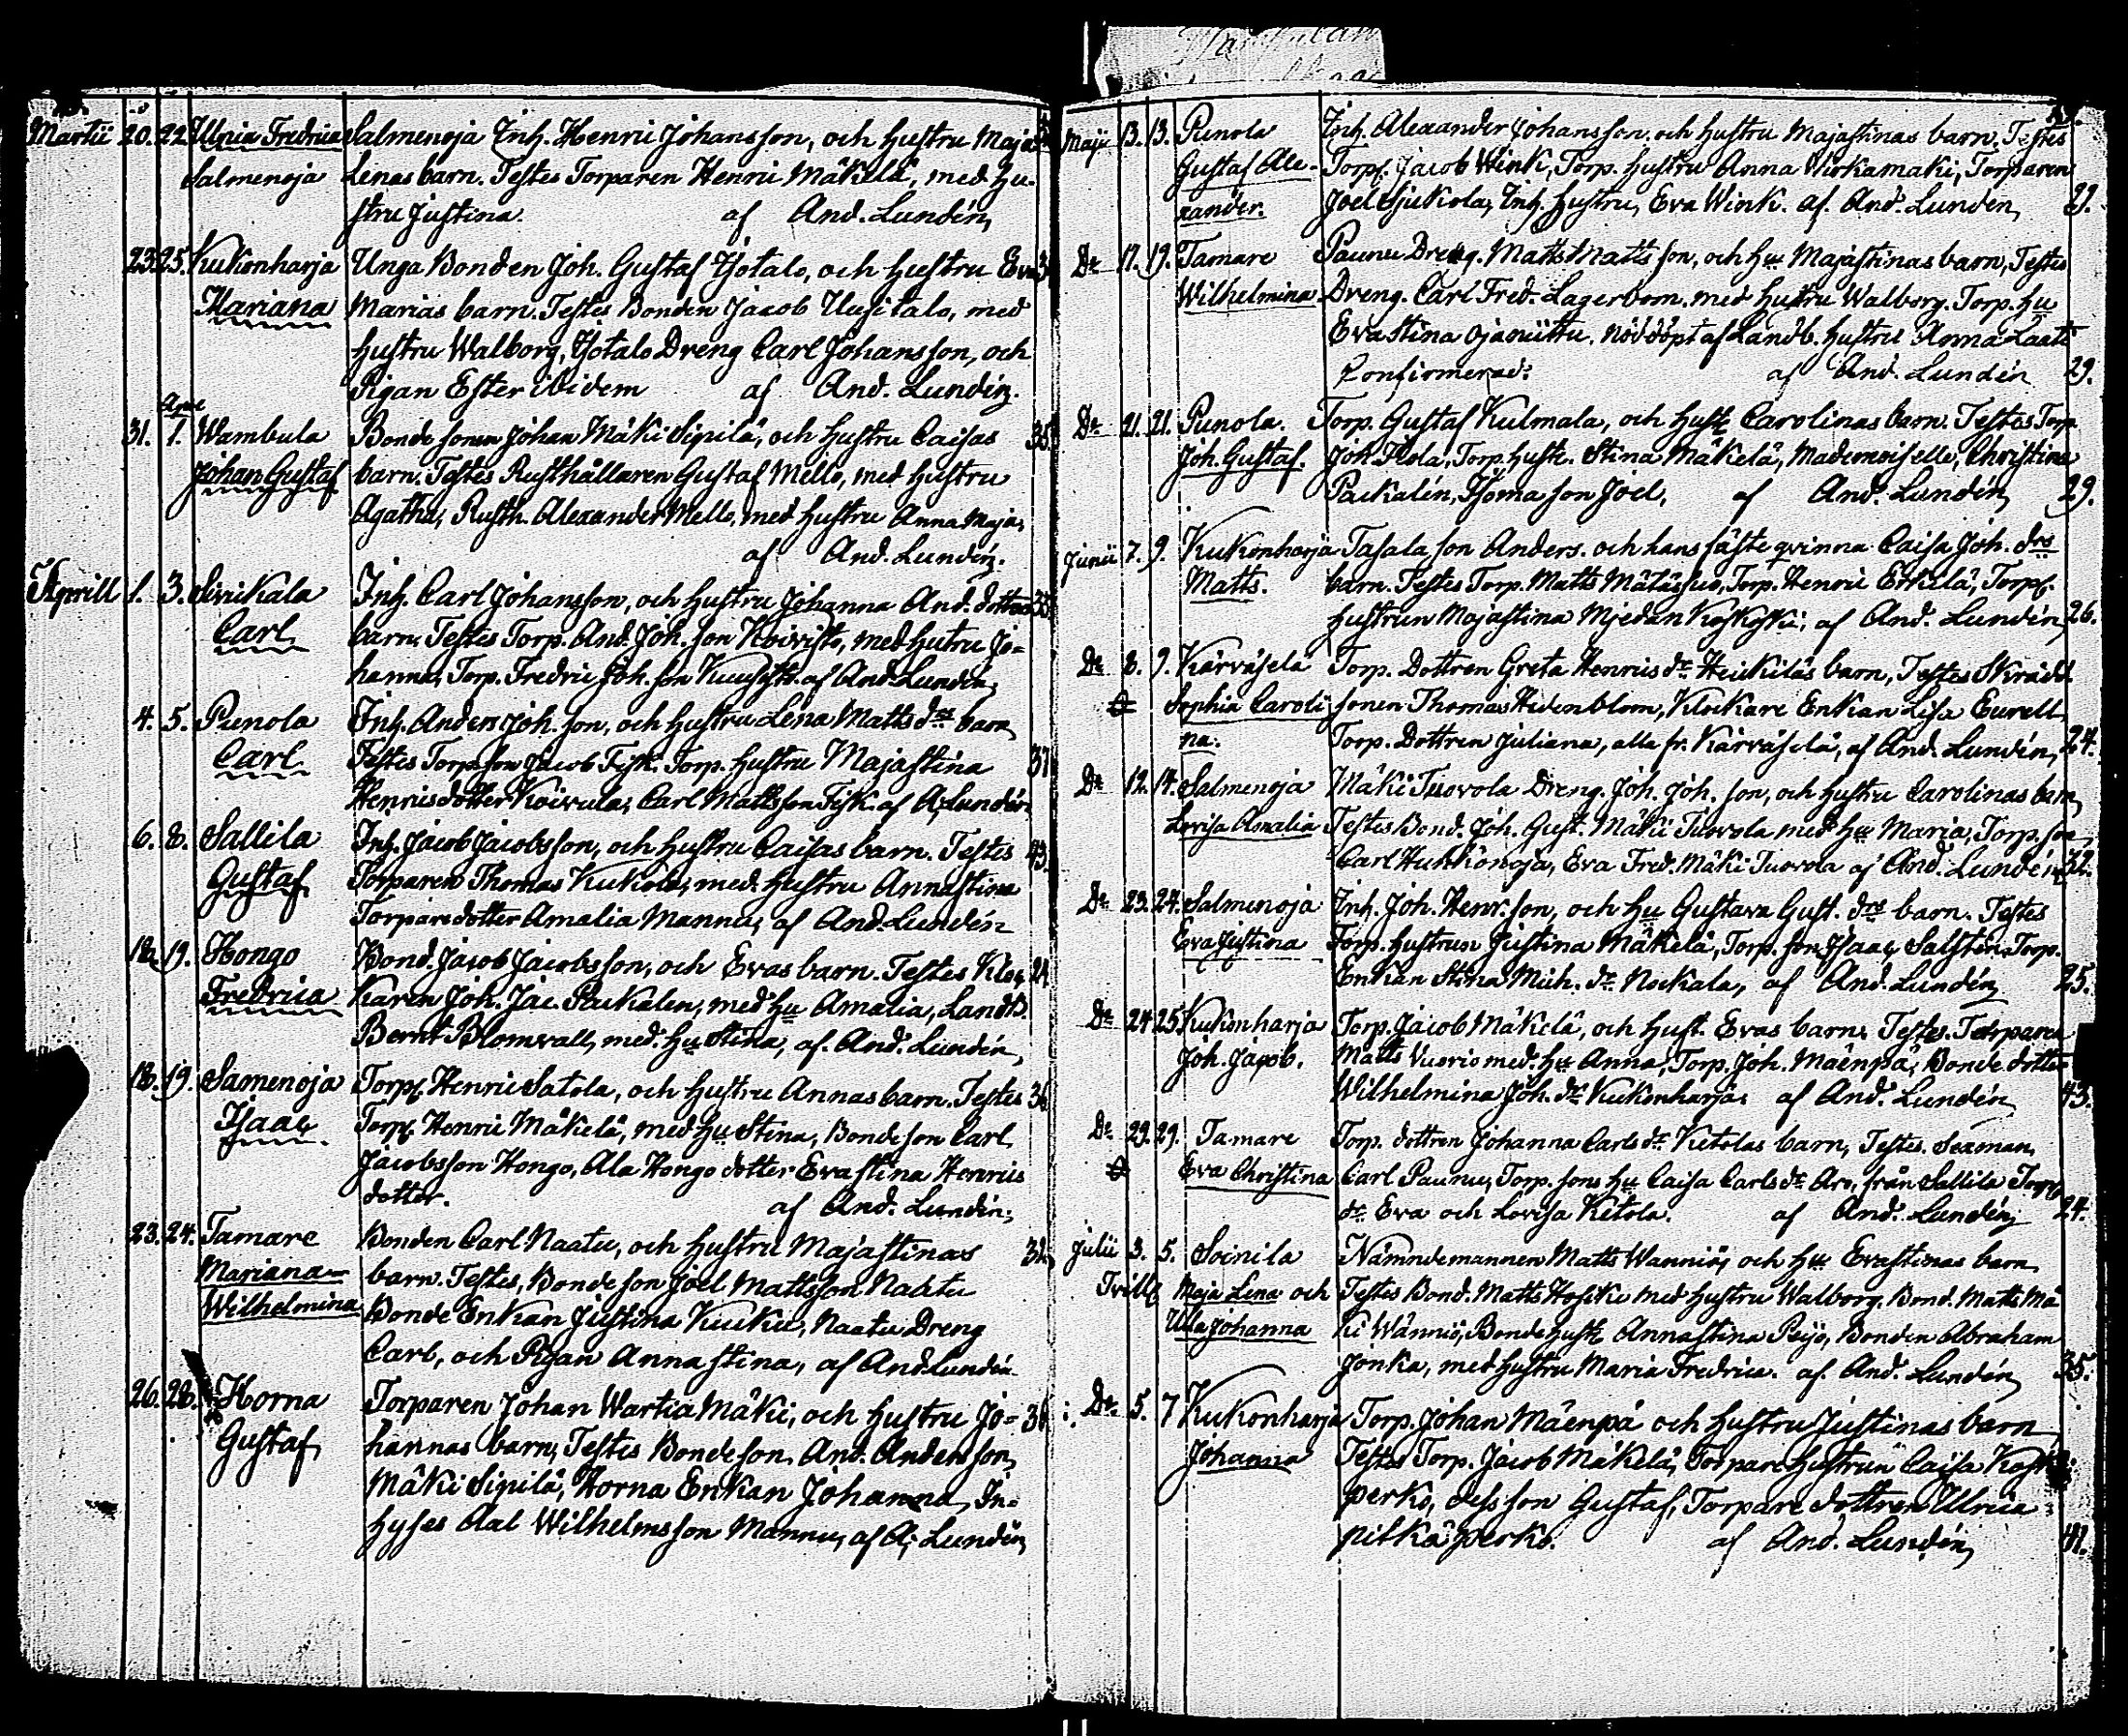 Martii 20. 22. Ulrica Fredrica Salmenoja Inh. Henric Johansson, och hustru Maja
Salmenoja Lenas barn. Testes Torparen Henric Mäkelä, med hu-
stru Justina af And. Lundén,
23. 25. Kukonharja Unga Bonden Joh. Gustaf Isotalo, och hustru Eva
Mariana Marias barn. Testes Bonden Jacob Uusitalo, med
hustru Walborg, Isotalo Dreng Carl Johansson, och
Pigan Ester ibidem af And. Lundén.
31. 1. Wambula Bonde sonen Johan Mäki Sipilä, och hustru Caisas 35
Johan Gustaf barn. Testes Rusthållaren Gustaf Mello, med hustru
Agatha, Rusth. Alexander Mello, med hustru Anna Maja,
af And. Lundén.
Aprill 1. 3. Sirikala Inh. Carl Johansson, och hustru Johanna And. dotters
Carl barn, Testes Torp. And. Joh. son Koivisto, med hutru Jo-
hanna, Torp. Fredric Joh. son af And. Lundén,
4. 5. Punola Inh. Anders Joh. son, och hustru Lena Matts drs barn
Carl Testes Torp. son Jacob Fisk. Torp. hustru Majastina 37
Henricsdotter Koivula, Carl Mattsson Fisk. af A. Lundén.
6. 8. Sallila Inh. Jacob Jacobsson, och hustru Caisas barn. Testes 43.
Gustaf Torparen Thomas Kukola, med hustru Annastina
Torparedotter Amalia Mannu, af And. Lundén
18. 19. Hongo Bond. Jacob Jacobsson, och Evas barn. Testes Kloc- 24
Fredrica karen Joh. Jac. Packalen, med hu Amalia, Landtb.
Bernt Blomvall, med hu Stina, af. And. Lundén,
18. 19. Samenoja Torp. Henric Satola, och hustru Annas barn. Testes 36
Isaac Torp. Henric Mäkelä, med hu Stina, Bondeson Carl
Jacobsson Hongo, Ala Hongo dotter Evastina Henrics
dotter. af And. Lundén,
23. 24. Tamare Bonden Carl Naatu, och hustru Majastinas 32,
Mariana barn. Testes, Bonde son Joel Mattsson Naatu
Wilhelmina Bonde Enkan Justina Kuku, Naatu Dreng
Carl, och Pigan Annastina, af And. Lundén
26. 28. Horna Torparen Johan Wartia Mäki, och hustru Jo- 36
Gustaf hannas barn, Testes Bondeson. And. Andersson,
Mäki Sipilä, Horna Enkan Johanna, In-
hyses Aal Wilhelmsson Mannu, af A. Lundén,
Maji 13. 13. Punola Inh. Alexander Johansson. och hustru Majastinas barn. Testes
Gustaf Ale- Torp. Jacob Wink, Torp. hustru Anna Wirkamaki, Torparen
xander. Joel Sjukola, Inh. hustru, Eva Wink. af. And. Lundén, 29.
Do 17. 19. Tamare Paunu Dreng. Matts Mattsson, och hu Majastinas barn, Testes
Wilhelmina Dreng. Carl Fred. Lagerbom. med hustru Walborg. Torp. hu
Evastina Ojaniittu. nöddöpt af Landb. hustru Anna Laati
Confirmerad: af And. Lundén 29.
Do 21. 21. Punola. Torp. Gustaf Kulmala, och hust. Carolinas barn. Testes Torp.
Joh. Gustaf. Joh. Isola, Torp. hust. Stina Mäkelä, Mademoiselle, Christina
Packalén, Isoma son Joel, af And. Lundén, 29.
Junii 7. 9. Kukonharja Tasala son Anders. och hans fäste qvinna Caisa Joh. drs
Matts. barn. Testes Torp. Matts Mätäsluo, Torp. Henric Erkelä, Torp.
hustrun Majastina Mjedan Koskoski; af And. Lundén, 26.
Do 8. 9. Kärväselä Torp. Dottren Greta Henrics dr Heickiläs barn, Testes Skrädd.
Sophia Caroli- sonen Thomas Hidenblom, Klockare Enkan Lisa Eurell,
na. Torp. Dottren Juliana, alla fr. Kärväselä, af And. Lundén, 24.
Do 12. 14. Salmenoja Mäki Tuovola Dreng. Joh. Joh. son, och hustru Carolinas barn,
Lovisa Amalia Testes Bond. Joh. Gust. Mäki Tuovola med hu Maria, Torp. son
Carl Huhkonoja, Eva Fred. Mäki Tuovola af And. Lundén, 32.
Do 23. 24. Salmenoja Inh. Joh. Henr. son, och hu Gustava Gust. drs barn. Testes
Eva Justina Torp. hustrun Justina Mäkelä, Torp. son Isaac Salsten, Torp.
Enkan Stina Mich. dr. Nockala, af And. Lundén, 25.
Do 24. 25. Kukonharja Torp. Jacob Mäkelä, och hust. Evas barn. Testes. Torparen
Joh. Jacob. Matts Vuorio med. hu Anna, Torp. Joh. Mäenpä, Bonde dotter
Wilhelmina Joh. dr. Kukonharja, af And. Lundén, 43.
Do 29. 29. Tamare Torp. dottren Johanna Carls dr Ketolas barn, Testes. Seaman.
Eva Christina Carl Paunu, Torp. sons hu Caisa Carls dr Aro, från Sallila Torp.
dr Eva och Lovisa Ketola. af And. Lundén, 24.
Julii 3. 5. Soinila Nämndemannen Matts Wanniö, och hu Evastinas barn
Trill. Maja Lena och Testes Bond. Matts Hosike med hustru Walborg. Bond. Matts Mä-
Ulla Johanna ki Wänniö, Bonde hust. Annastina Peijo, Bonden Abraham
Jonka, med hustru Maria Fredrica. af. And. Lundén, 35.
Do. 5. 7 Kukonharja Torp. Johan Mäenpä och hustru Justinas barn
Johanna Testes Torp. Jacob Mäkelä, Torpare hustrun Caisa
perko, dess son Gustaf, Torpare dottren Ulrica
pitkäperko. af And. Lundén, 41.